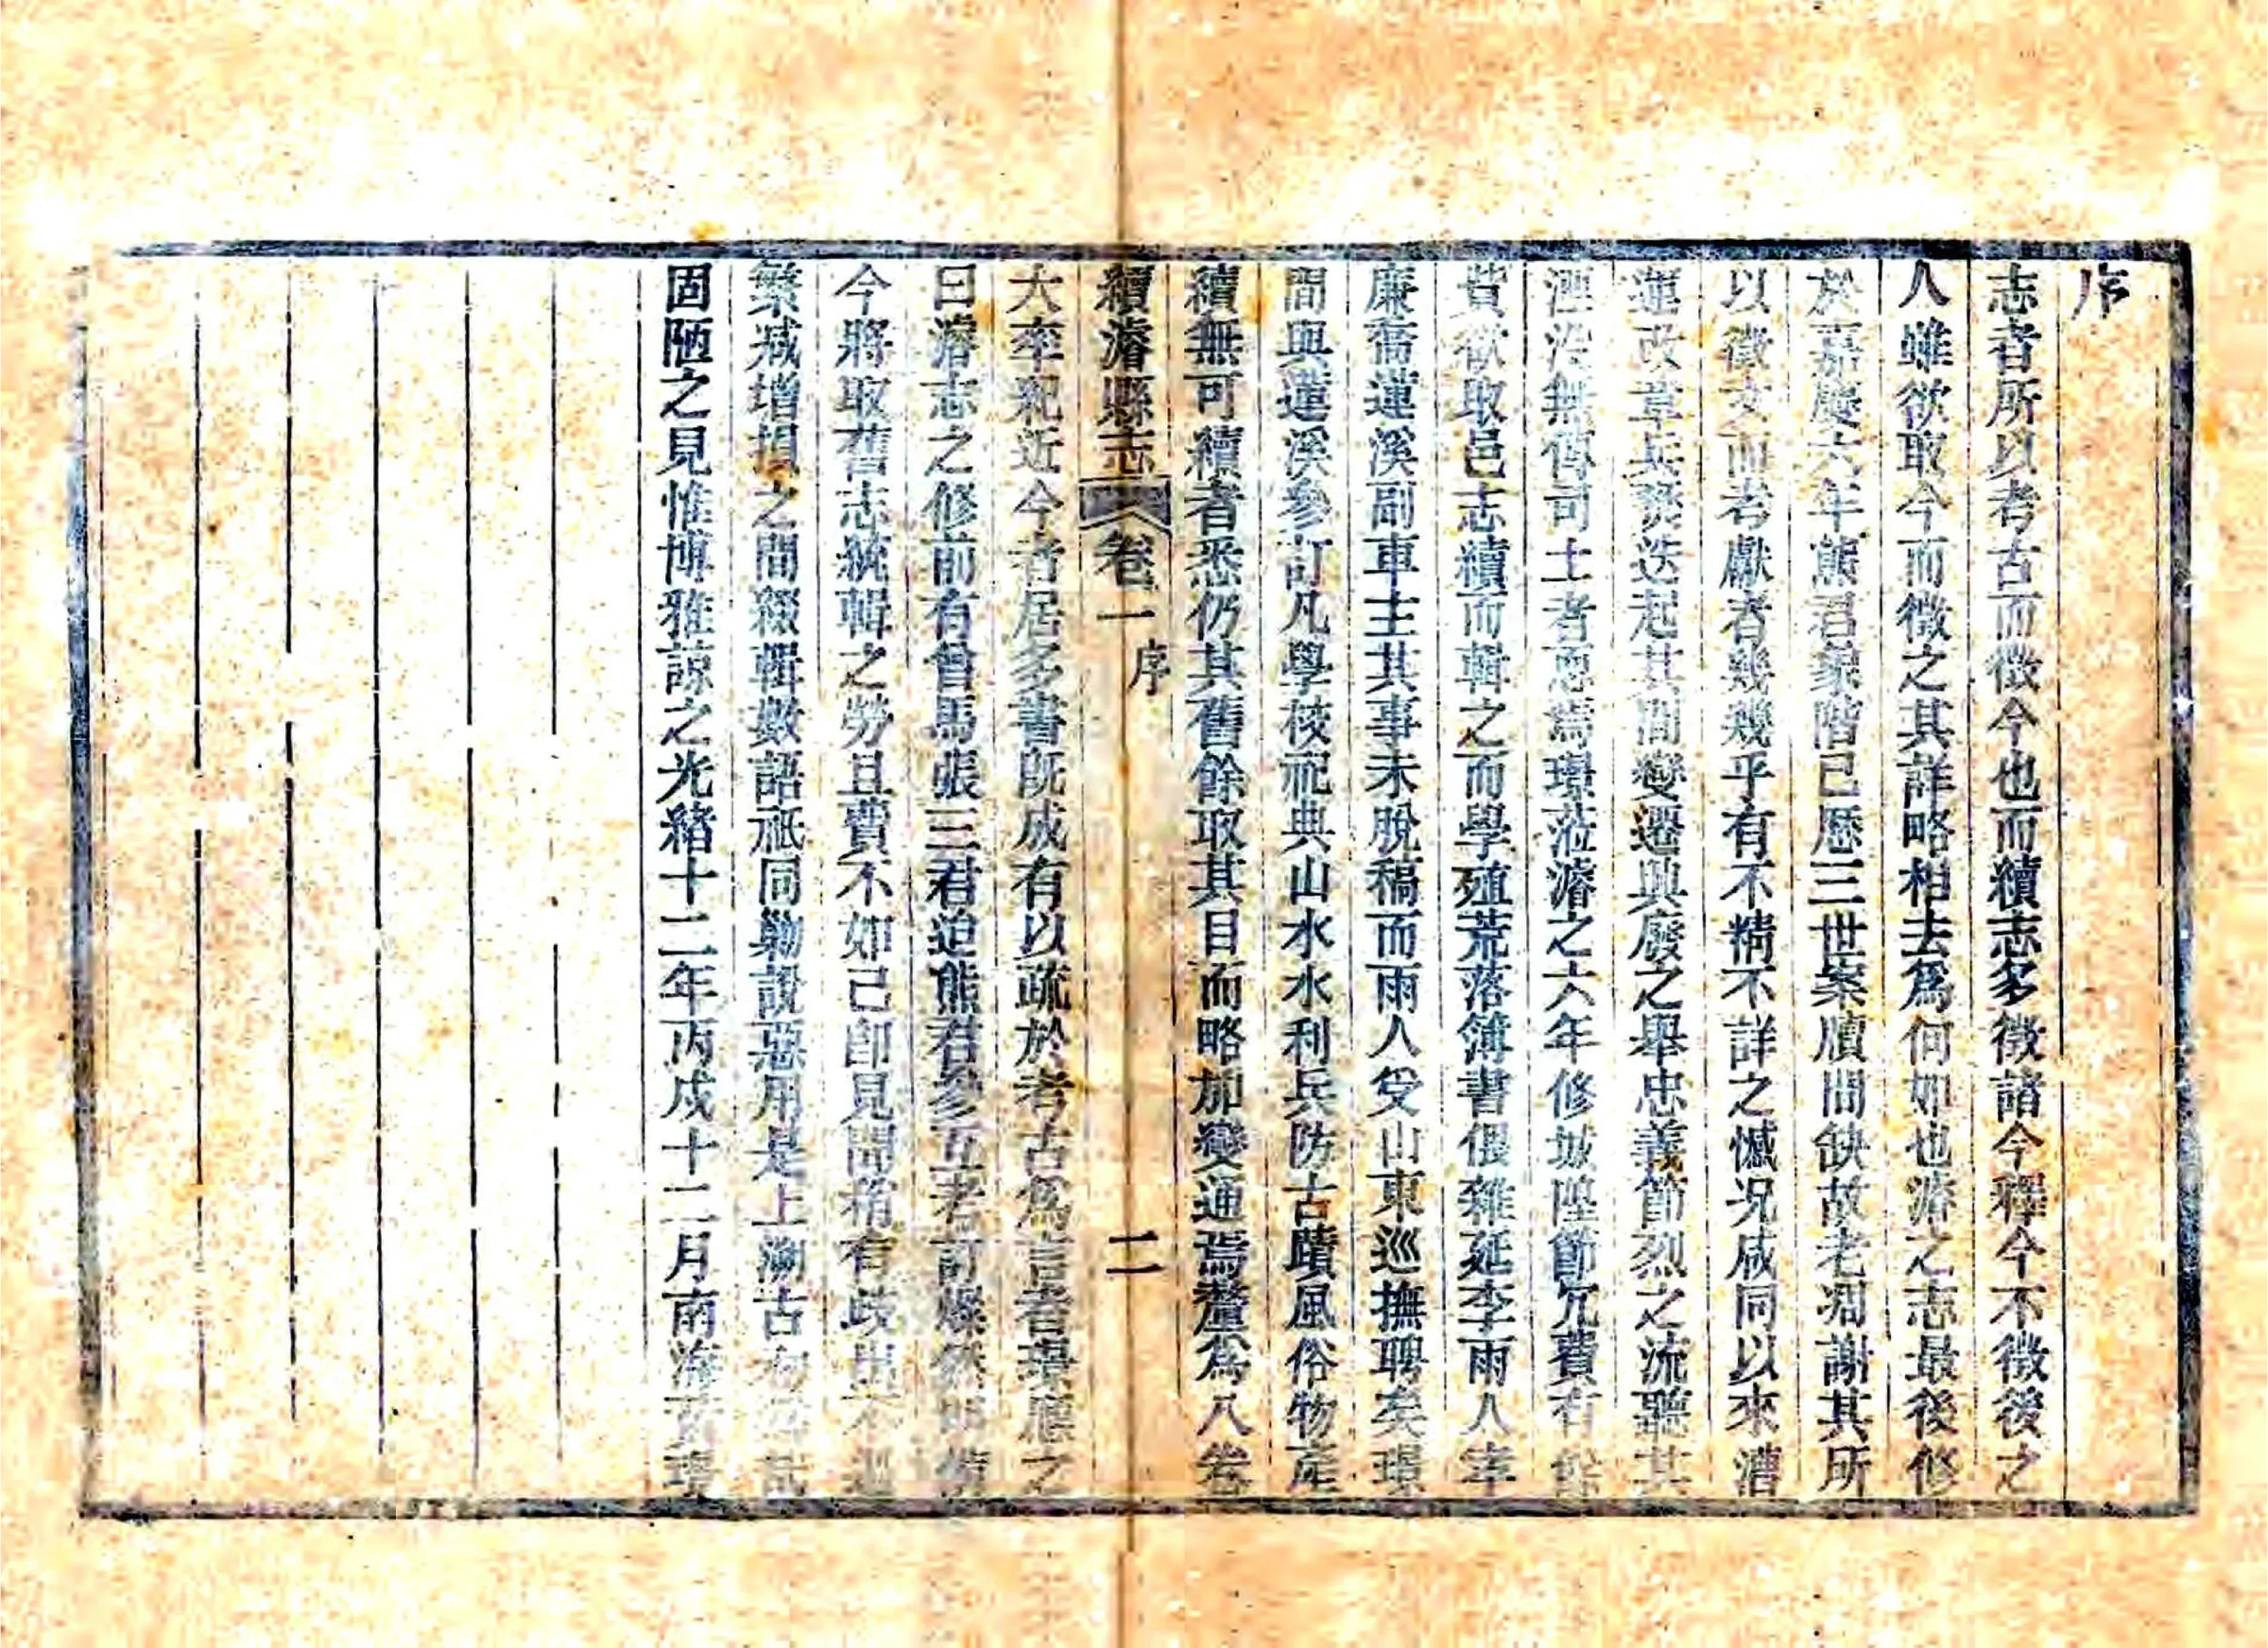 序
志者所以考古而徵今也而續志多徵諸今釋今不徵後之
人雖欲取今而徵之其詳略相去爲何如也濬之志最後修
於嘉慶六年熊君象階已歷三世案牘間缺故老凋謝其所
以徵文而考獻者幾幾乎有不精不詳之憾况咸同以來漕
運改章兵燹迭起其間變遷興廢之舉忠義節烈之流聽其
湮没無傳司土者恧焉璟蒞濬之六年修城隍節冗費有餘
貲欲取邑志續而輯之而學殖荒落簿書偎雜延李雨人宰
廉喬蓮溪副車主其事未脫稿而雨人受山東巡撫聘矣璟
間與蓮溪參訂凡學校祀典山水水利兵防古蹟風俗物產
續無可續者悉仍其舊餘取其目而略加變通焉釐爲八卷
續濬縣志 卷一 序 二
大率紀近今者居多書既成有以疏於考古爲言者璟應之
曰濬志之修前有曾馬張三君迨熊君參互考訂燦然
今將取舊志統輯之勞且費不如已卽見聞稍有歧出不
繁减增損之間綴輯數語祇同勦說惡用是上溯古
固陋之見惟博雅諒之光緒十二年丙戌十二月南海黃璟